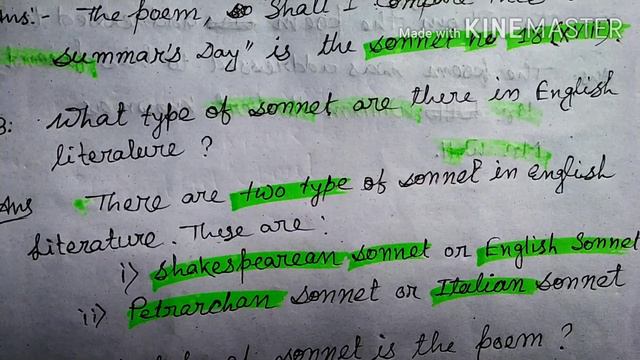 Ans:- The poem, Shall I Compare Thee
Made with KINEMASTER
Summar's Day" is the sonnet no 18 (XVIII).
3: What type of sonnet are there in English
literature ?
Ans There are two type of sonnet in english
literature. These are :
i) Shakespearean sonnet or English Sonnet
ii) Petrarchan sonnet or Italian sonnet
of sonnet is the poem ?